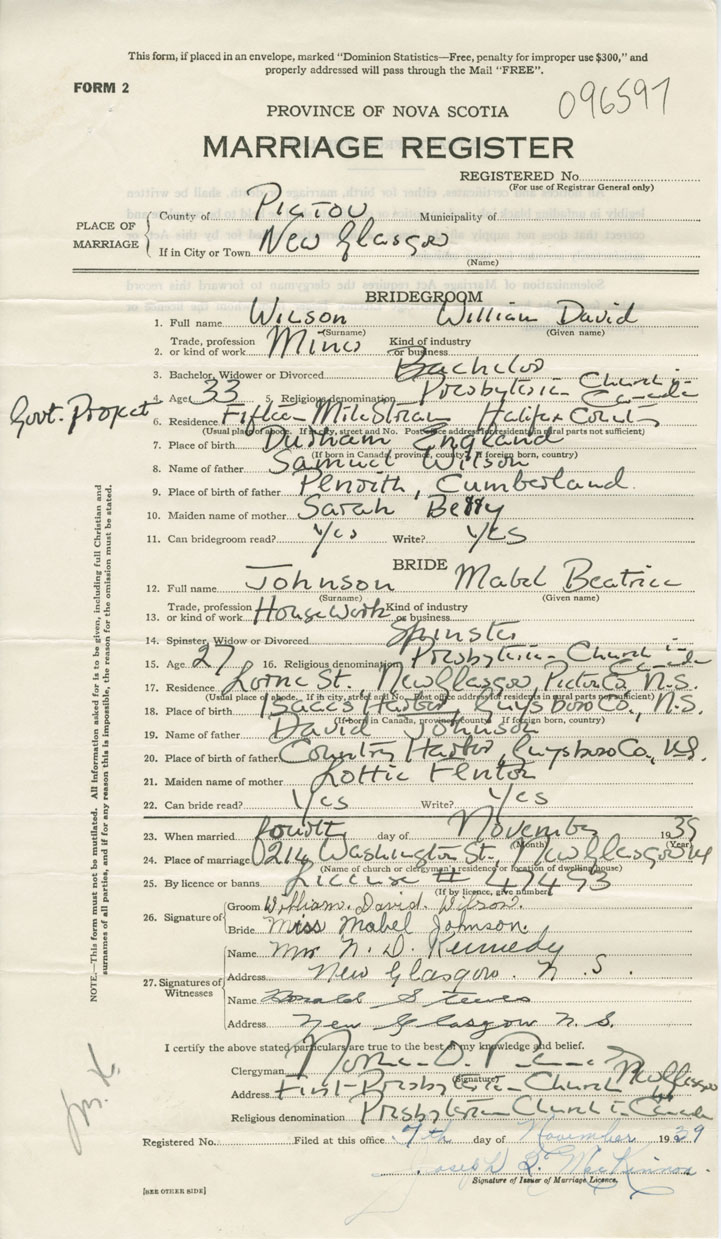 This form, if placed in an envelope, marked "Dominion Statistics—Free, penalty for improper use $300," and
properly addressed will pass through the Mail "FREE".
FORM 2
096597
PROVINCE OF NOVA SCOTIA
MARRIAGE REGISTER
REGISTERED No.
(For use of Registrar General only)
PLACE OF MARRIAGE
County of Pictou Municipality of
If in City or Town New Glasgow
(Name)
BRIDEGROOM
1. Full name Wilson William David
(Surname) (Given name)
2. Trade, profession or kind of work Miner Kind of industry or business
3. Bachelor, Widower or Divorced Bachelor
4. Age 33 5. Religious denomination Presbyterian Church in Canada
Govt. Project
6. Residence Fifteen Mile Stream Halifax County
(Usual place of abode. If in city, street and No. Post office address of residents in rural parts not sufficient)
7. Place of birth Durham England
(If born in Canada, province, county. If foreign born, country)
8. Name of father Samuel Wilson
9. Place of birth of father Penrith, Cumberland
10. Maiden name of mother Sarah Betty
11. Can bridegroom read? Yes Write? Yes
BRIDE
12. Full name Johnson Mabel Beatrice
(Surname) (Given name)
13. Trade, profession or kind of work Housework Kind of industry or business
14. Spinster, Widow or Divorced Spinster
15. Age 27 16. Religious denomination Presbyterian Church in Canada
17. Residence Lorne St. New Glasgow, Pictou Co. N.S.
(Usual place of abode. If in city, street and No. Post office address of residents in rural parts not sufficient)
18. Place of birth Isaacs Harbor, Guysboro Co., N.S.
(If born in Canada, province, county. If foreign born, country)
19. Name of father David Johnson
20. Place of birth of father Country Harbor, Guysboro Co., N.S.
21. Maiden name of mother Lottie Fenton
22. Can bride read? Yes Write? Yes
23. When married fourth day of November 1939
(Month) (Year)
24. Place of marriage 214 Washington St., New Glasgow
(Name of church or clergyman's residence or location of dwelling house)
25. By licence or banns License # 47493
(If by licence, give number)
26. Signature of
Groom William. David. Wilson.
Bride Miss Mabel Johnson.
27. Signatures of Witnesses
Name Mrs N. D. Kennedy
Address New Glasgow. N.S.
Name Donald Steeves
Address New Glasgow N.S.
I certify the above stated particulars are true to the best of my knowledge and belief.
Clergyman
(Signature)
Address First Presbyterian Church New Glasgow
Religious denomination Presbyterian Church in Canada
Registered No. Filed at this office 7th day of November 1939
Joseph MacKinnon
Signature of Issuer of Marriage Licence.
[SEE OTHER SIDE]
NOTE.—This form must not be mutilated. All information asked for is to be given, including full Christian and
surnames of all parties, and if for any reason this is impossible, the reason for the omission must be stated.